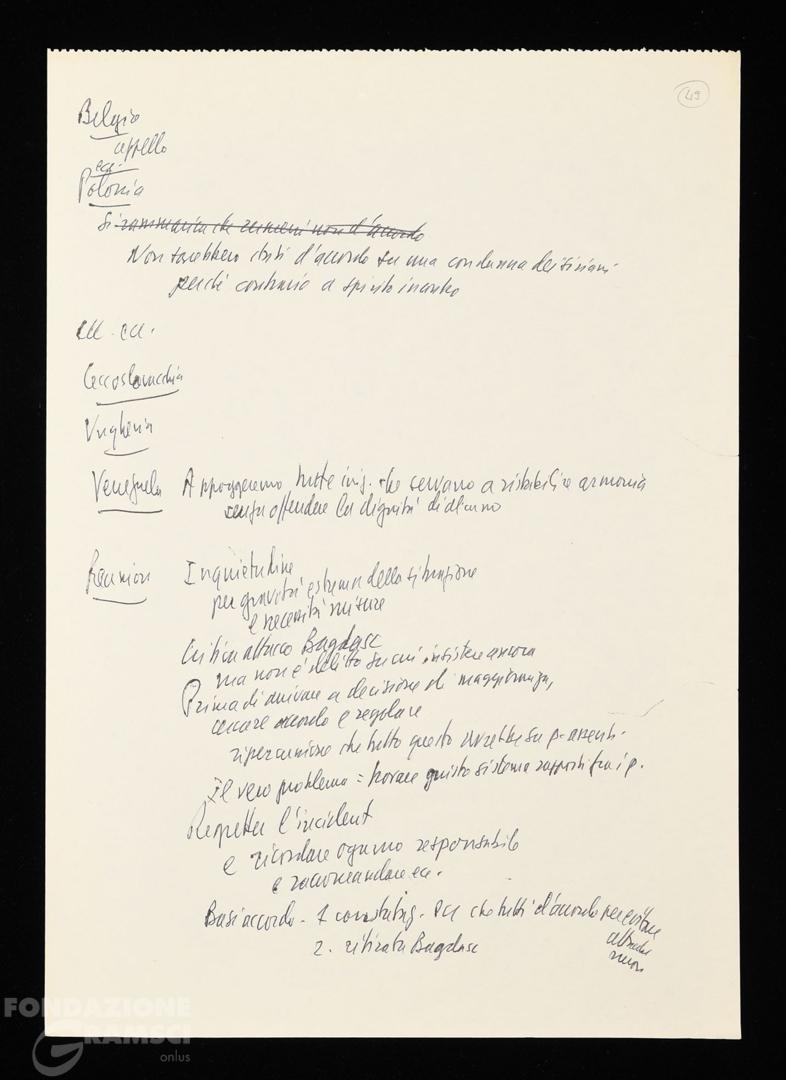 49
Belgio
appello
ecc.
Polonia
Si rammarica che rumeni non d'accordo
Non sarebbero stati d'accordo su una condanna dei cinesi
perché contrario a spirito incontro
ecc. ecc.
Cecoslovacchia
Ungheria
Venezuela Appoggeremo tutte iniz. che servano a ristabilire armonia
senza offendere la dignità di alcuno
Reunion Inquietudine
per gravità estrema della situazione
e necessità misure
Critica attacco Bagdasc
ma non è delitto su cui insistere ancora
Prima di arrivare a decisione di maggioranza,
cercare accordo e regolare
ripercussione che tutto questo avrebbe su p. assenti.
Il vero problema = trovare giusto sistema rapporti fra i p.
l'incident
e ricordare ognuno responsabile
e raccomandare ecc.
Basi accordo - 1 che tutti d'accordo per evitare
altri
2. ritirata Bagdasc
FONDAZIONE
GRAMSCI
onlus